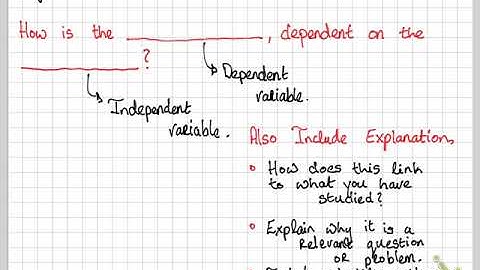 How is the ____________, dependent on the
____________?
Dependent
variable.
Independent
variable.
Also Include Explanation,
• How does this link
to what you have
studied?
• Explain why it is a
relevant question
or problem.